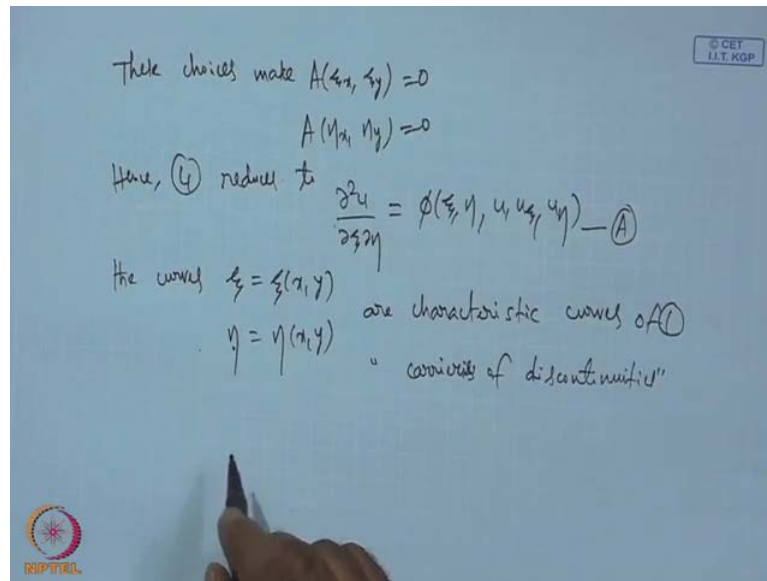 © CET
I.I.T. KGP
These choices make A(ξx, ξy) = 0
A(ηx, ηy) = 0
Hence, ④ reduces to
∂²u/∂ξ∂η = φ(ξ, η, u, uξ, uη) — Ⓐ
the curves ξ = ξ(x, y)
η = η(x, y)
are characteristic curves of ①
"carriers of discontinuities"
NPTEL